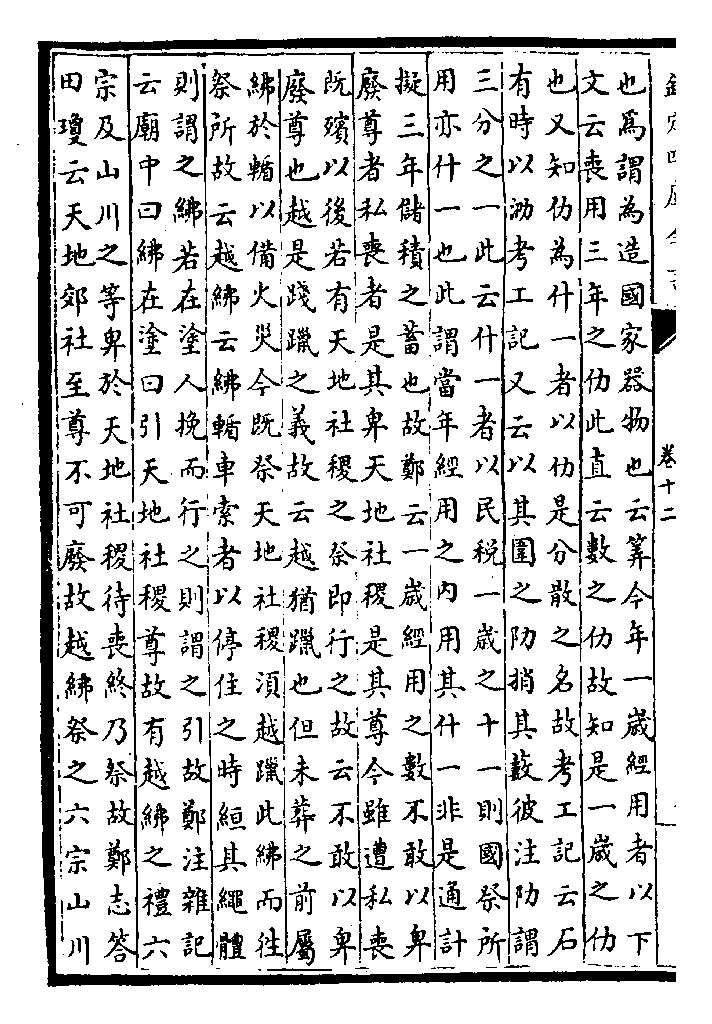 欽定四庫全書
卷十二
也爲謂為造國家器物也云筭今年一歲經用者以下
文云喪用三年之仂此直云數之仂故知是一歲之仂
也又知仂為什一者以仂是分散之名故考工記云石
有時以泐考工記又云以其圍之阞捎其藪彼注阞謂
三分之一此云什一者以民稅一歲之十一則國祭所
用亦什一也此謂當年經用之内用其什一非是通計
擬三年儲積之蓄也故鄭云一歲經用之數不敢以卑
廢尊者私喪者是其卑天地社稷是其尊今雖遭私喪
既殯以後若有天地社稷之祭即行之故云不敢以卑
廢尊也越是踐躐之義故云越猶躐也但未葬之前屬
紼於輴以備火災今既祭天地社稷須越躐此紼而往
祭所故云越紼云紼輴車索者以停住之時縆其繩體
則謂之紼若在塗人挽而行之則謂之引故鄭注雜記
云廟中曰紼在塗曰引天地社稷尊故有越紼之禮六
宗及山川之等卑於天地社稷待喪終乃祭故鄭志答
田瓊云天地郊社至尊不可廢故越紼祭之六宗山川